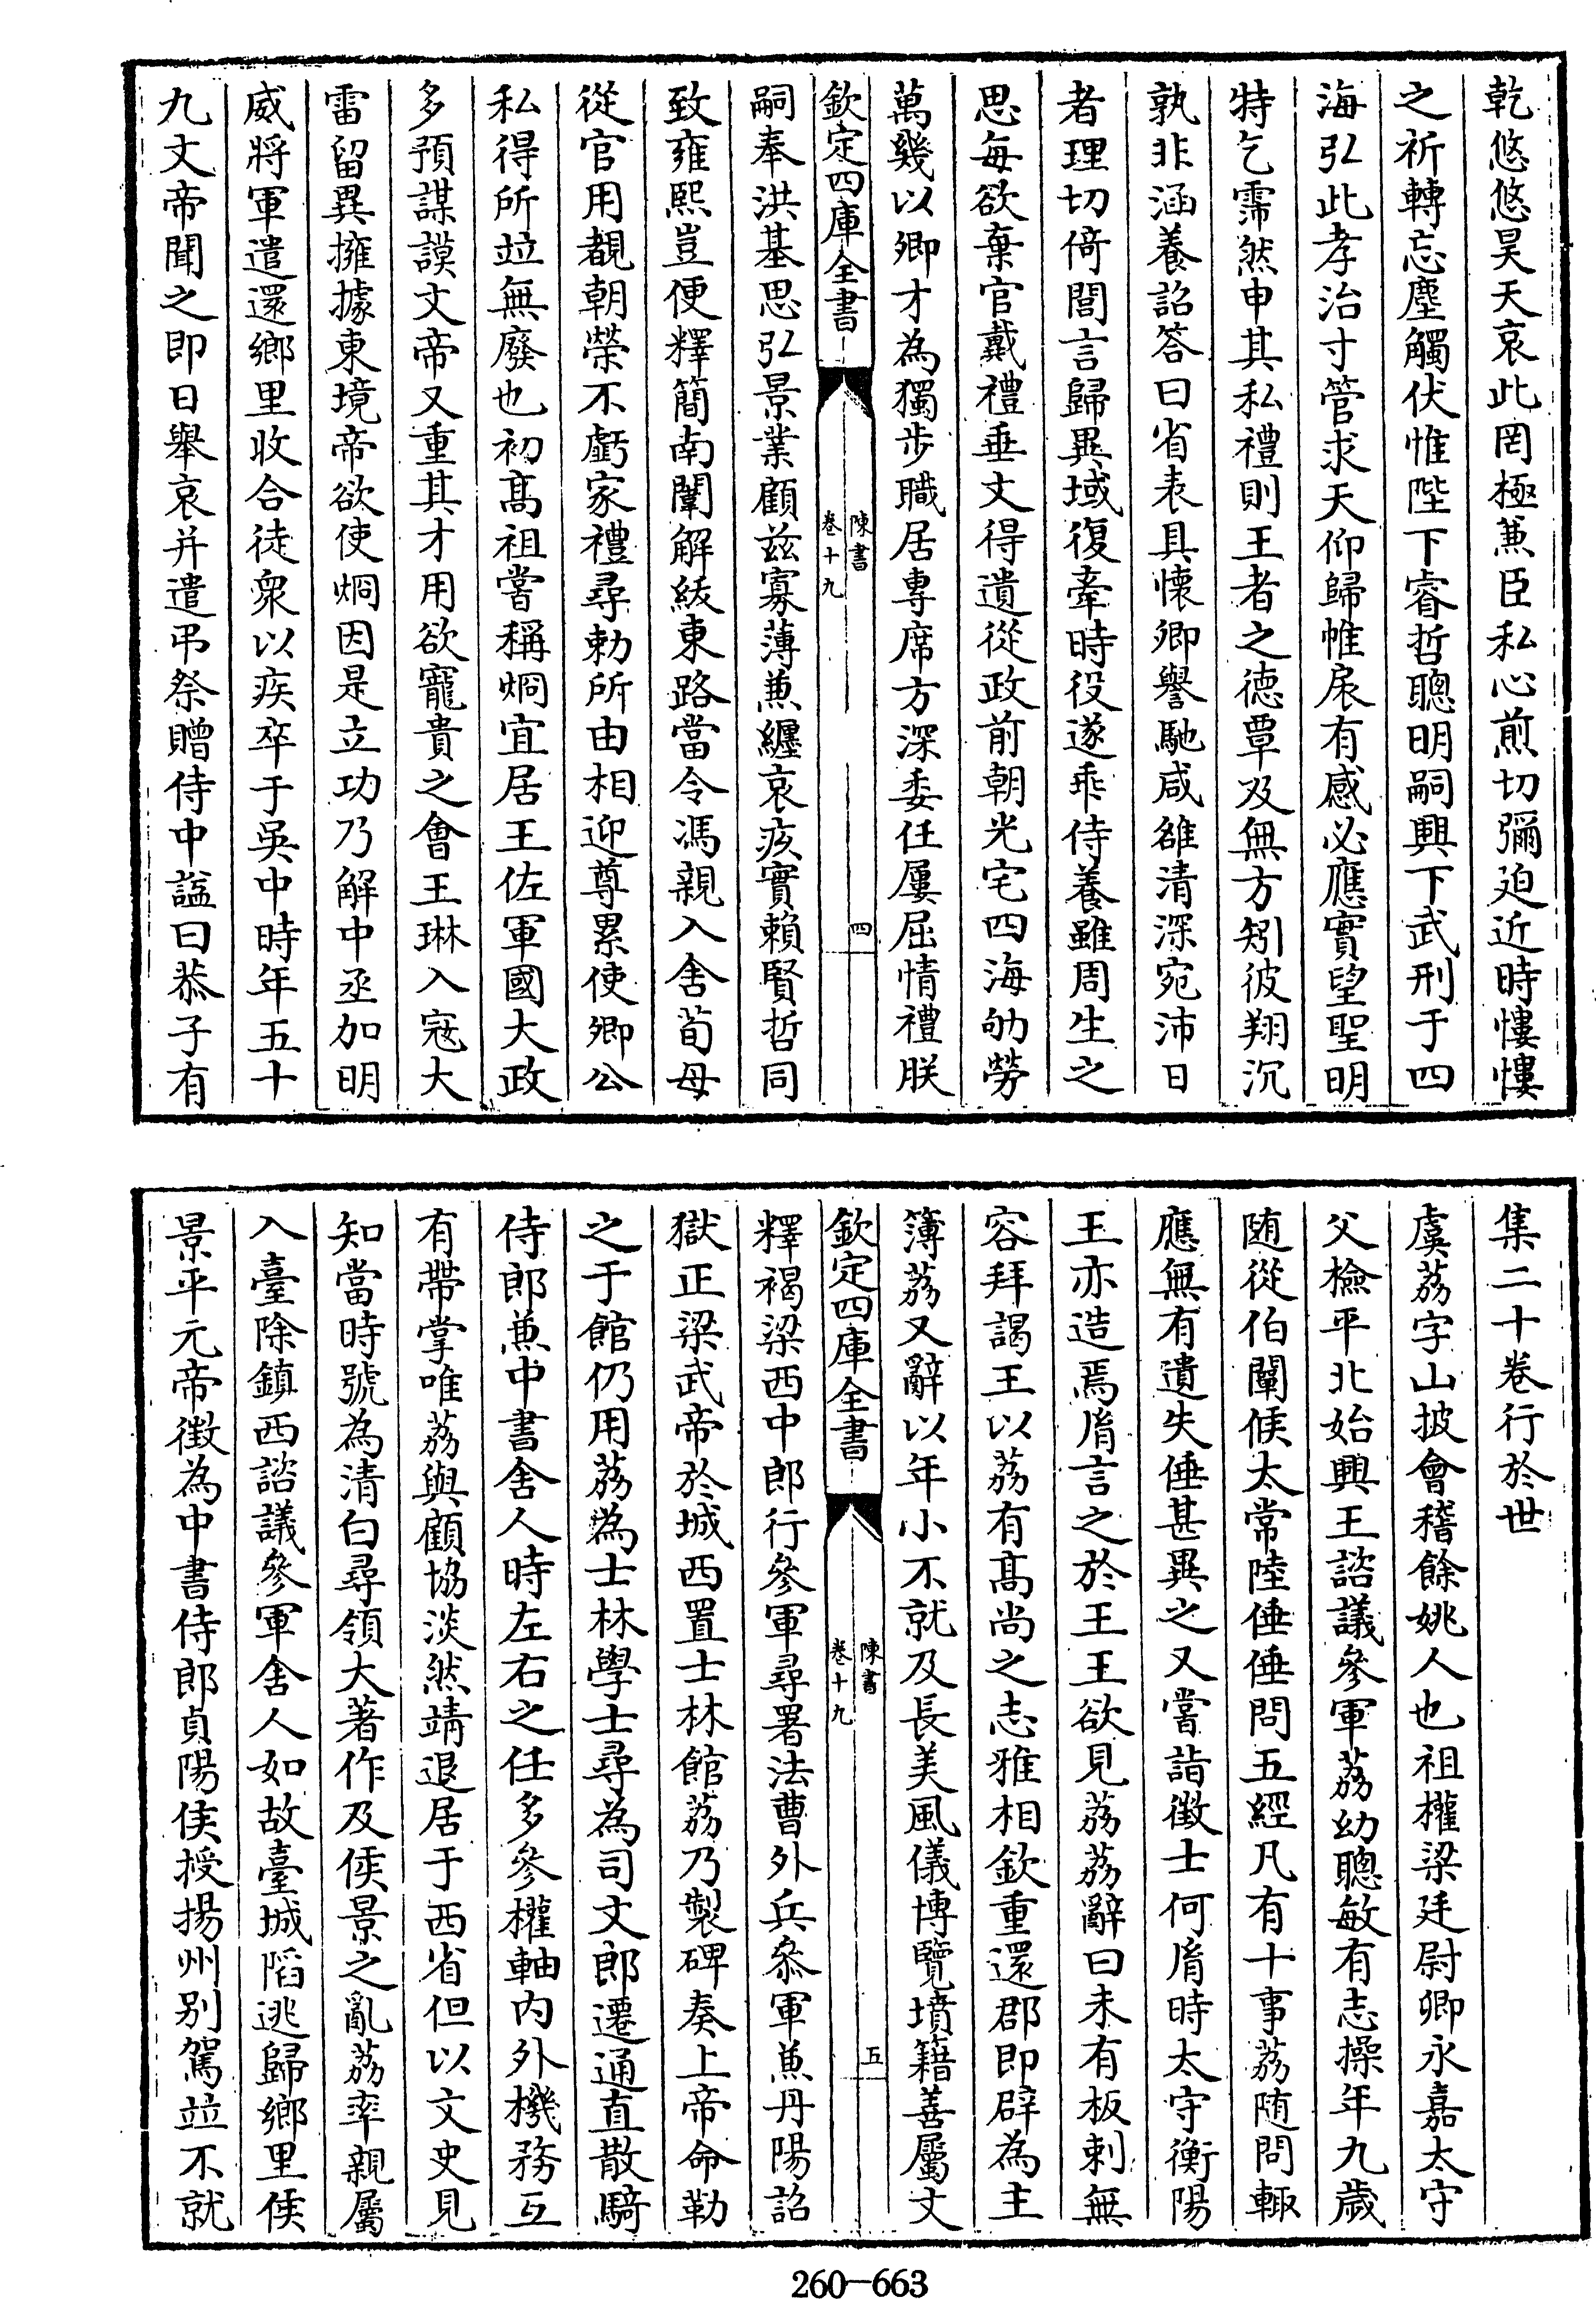 乾悠悠昊天哀此罔極兼臣私心煎切彌迫近時慺慺
之祈轉忘塵觸伏惟陛下睿哲聰明嗣興下武刑于四
海弘此孝治寸管求天仰歸帷扆有感必應實望聖明
特乞霈然申其私禮則王者之德覃及無方矧彼翔沉
孰非涵養詔答曰省表具懷卿譽馳咸雒清深宛沛日
者理切倚閭言歸異域復牽時役遂乖侍養雖周生之
思每欲棄官戴禮垂文得遺從政前朝光宅四海劬勞
萬幾以卿才為獨步職居專席方深委任屢屈情禮朕
欽定四庫全書
陳書
卷十九
四
嗣奉洪基思弘景業顧茲寡薄兼纏哀疚實賴賢哲同
致雍熙豈便釋簡南闈解紱東路當令馮親入舍荀母
從官用覩朝榮不虧家禮尋勅所由相迎尊累使卿公
私得所竝無廢也初高祖嘗稱烱宜居王佐軍國大政
多預謀謨文帝又重其才用欲寵貴之會王琳入寇大
雷留異擁據東境帝欲使烱因是立功乃解中丞加明
威將軍遣還鄉里收合徒衆以疾卒于吳中時年五十
九文帝聞之即日舉哀并遣弔祭贈侍中諡曰恭子有
集二十卷行於世
虞荔字山披會稽餘姚人也祖權梁廷尉卿永嘉太守
父檢平北始興王諮議參軍荔幼聰敏有志操年九歲
隨從伯闡候太常陸倕倕問五經凡有十事荔隨問輒
應無有遺失倕甚異之又嘗詣徵士何胤時太守衡陽
王亦造焉胤言之於王王欲見荔荔辭曰未有板刺無
容拜謁王以荔有高尚之志雅相欽重還郡即辟為主
簿荔又辭以年小不就及長美風儀博覽墳籍善屬文
欽定四庫全書
陳書
卷十九
五
釋褐梁西中郎行參軍尋署法曹外兵參軍兼丹陽詔
獄正梁武帝於城西置士林館荔乃製碑奏上帝命勒
之于館仍用荔為士林學士尋為司文郎遷通直散騎
侍郎兼中書舍人時左右之任多參權軸內外機務互
有帶掌唯荔與顧協淡然靖退居于西省但以文史見
知當時號為清白尋領大著作及侯景之亂荔率親屬
入臺除鎮西諮議參軍舍人如故臺城陷逃歸鄉里侯
景平元帝徵為中書侍郎貞陽侯授揚州別駕竝不就
260-663